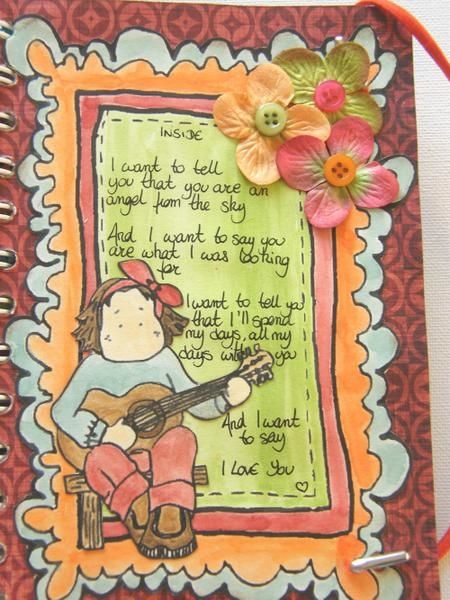 INSIDE
I want to tell
you that you are an
angel from the sky
And I want to say you
are what I was looking
for
I want to tell you
that I'll spend
my days, all my
days with you
And I want
to say
I LOVE YOU